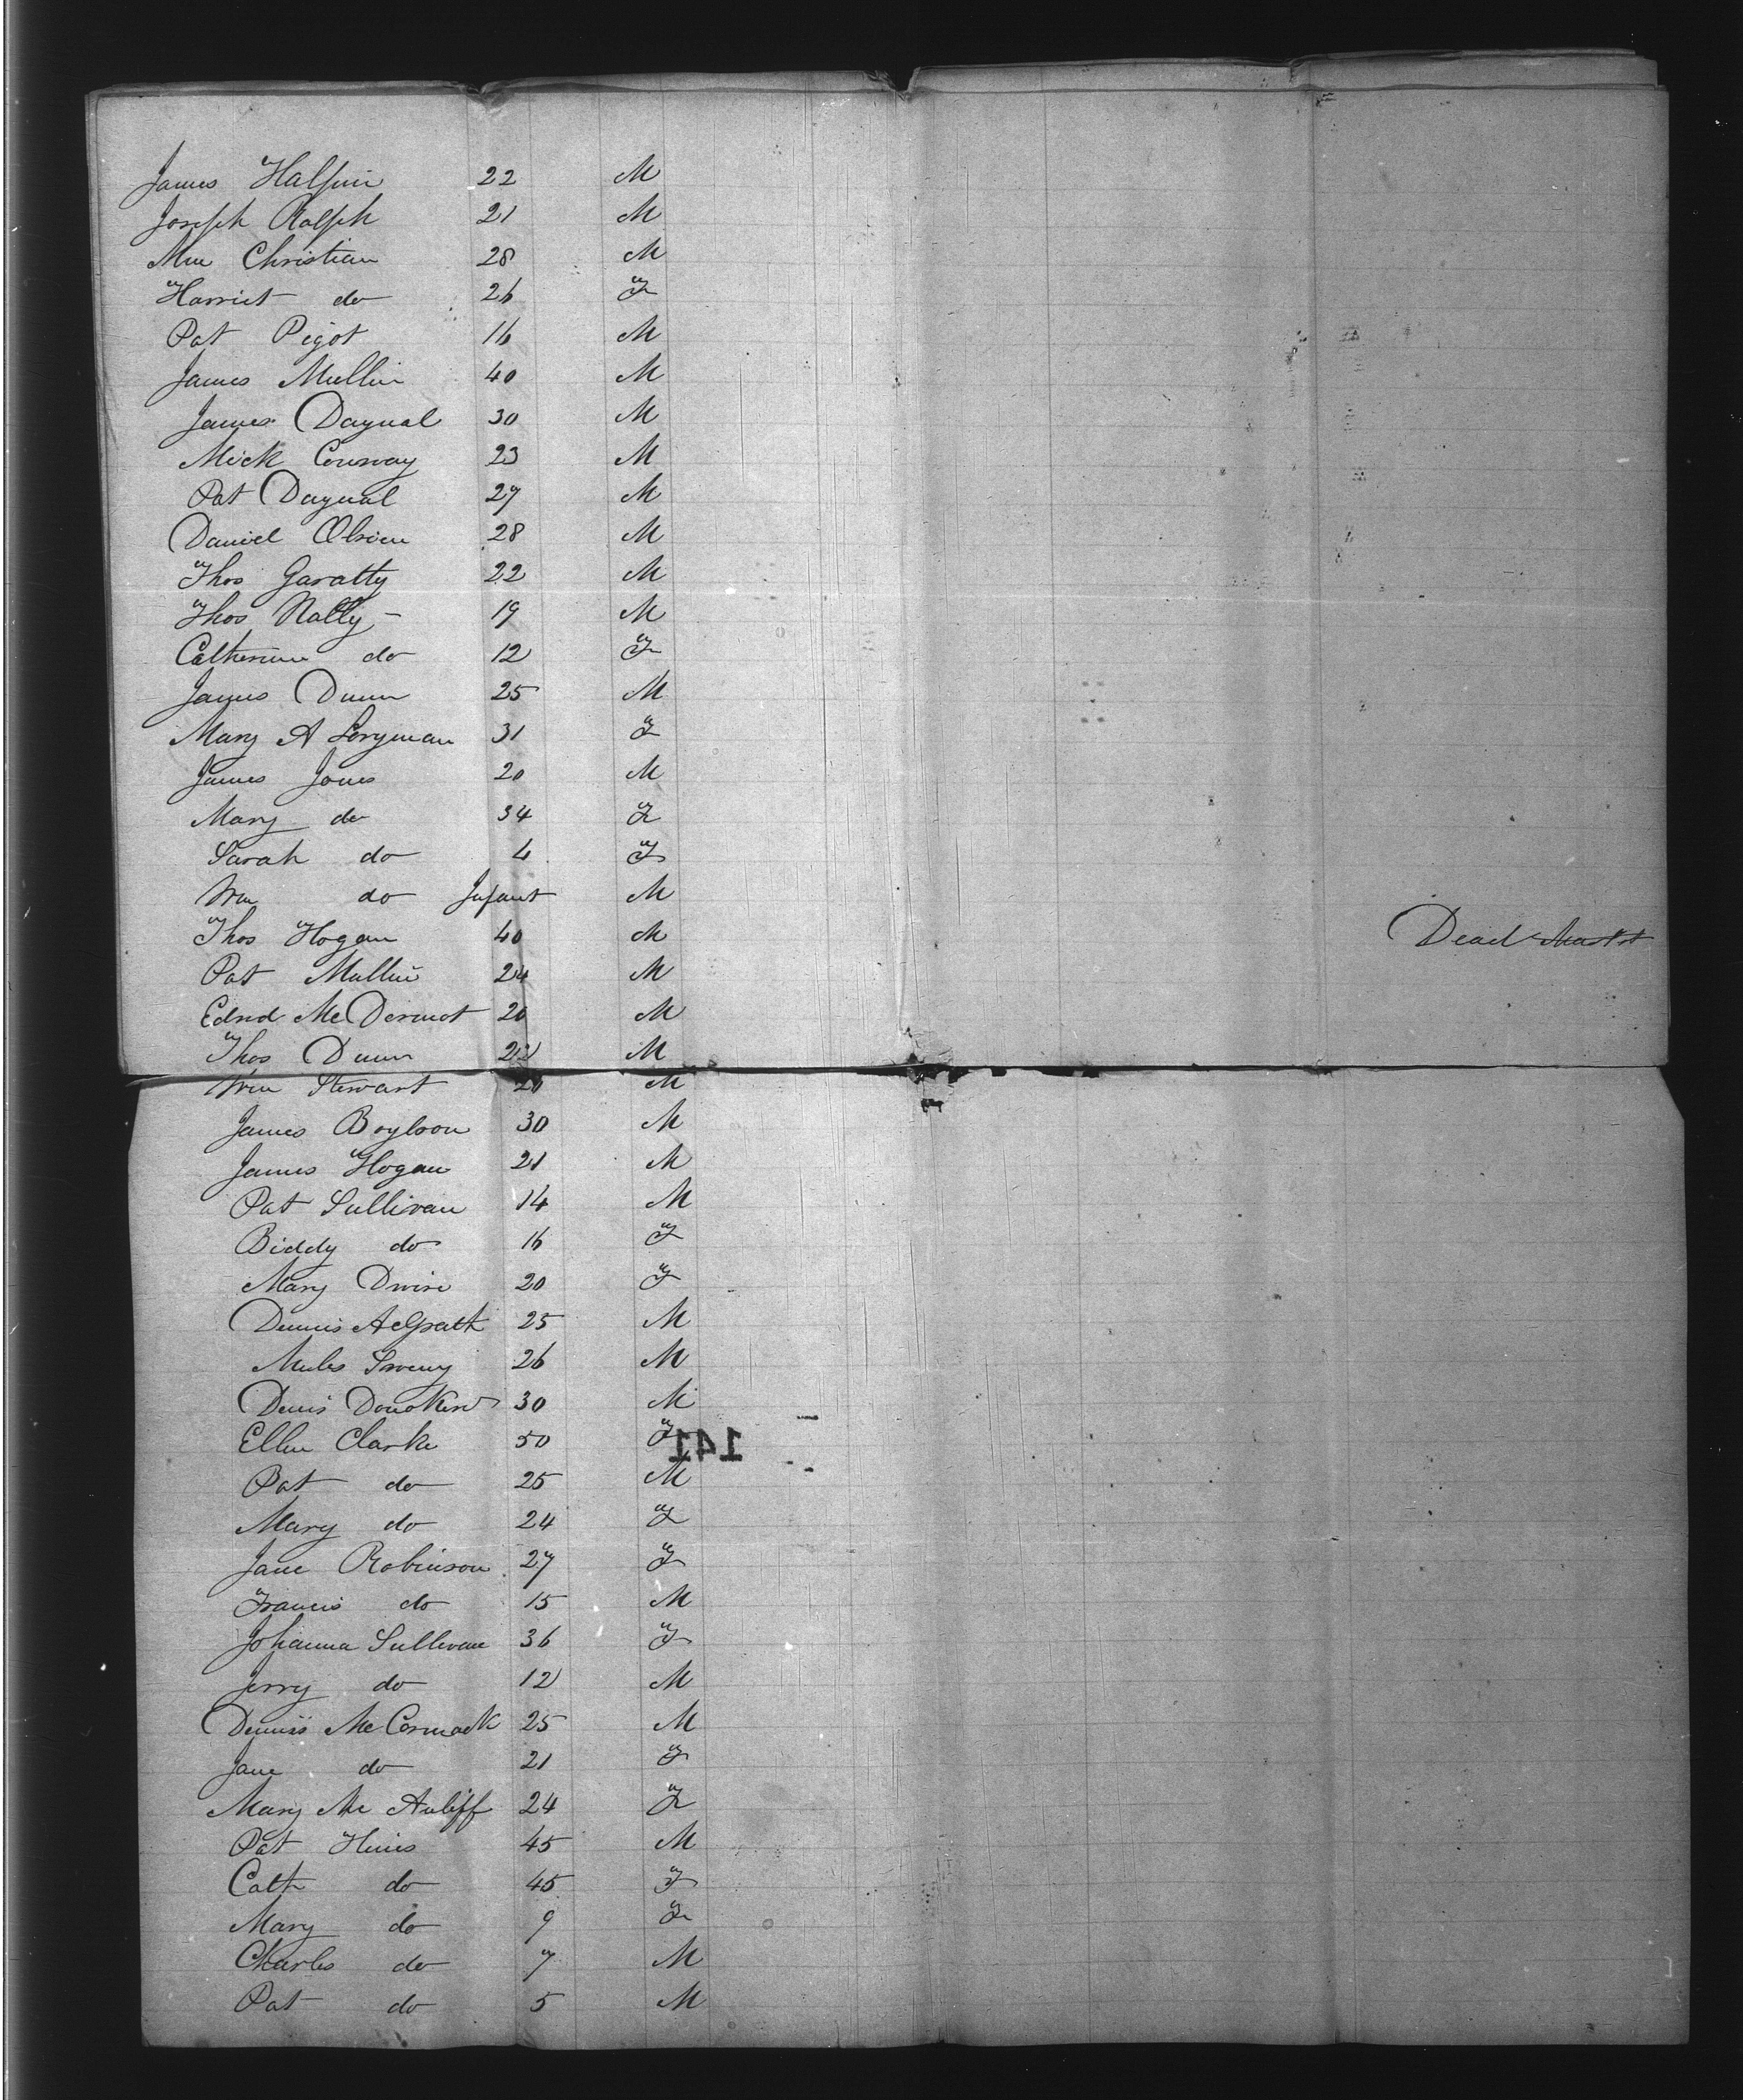 James Halpin 22 M
Joseph Ralph 21 M
Wm Christian 28 M
Harriet do 26 F
Pat Pigot 16 M
James Mullin 40 M
James Dagnal 30 M
Mick Conway 23 M
Pat Dagnal 27 M
Daniel Obrien 28 M
Thos Garatty 22 M
Thos Nally 19 M
Catherine do 12 F
James Dunn 25 M
Mary A Loryman 31 F
James Jones 20 M
Mary do 34 F
Sarah do 4 F
Wm do Infant M
Thos Hogan 40 M Dead
Pat Mullin 24 M
Edmd McDermot 20 M
Thos Dunn 22 M
Wm Stewart 20 M
James Boylson 30 M
James Hogan 21 M
Pat Sullivan 14 M
Biddy do 16 F
Mary Dwire 20 F
Dennis 25 M
Miles Sweeny 26 M
Denis 30 M
Ellen Clarke 50 F
141
Pat do 25 M
Mary do 24 F
Jane Robinson 27 F
Francis do 15 M
Johanna Sullivan 36 F
Jerry do 12 M
Dennis McCormack 25 M
Jane do 21 F
Mary Mc Auliff 24 F
Pat Hines 45 M
Cath do 45 F
Mary do 9 F
Charles do 7 M
Pat do 5 M